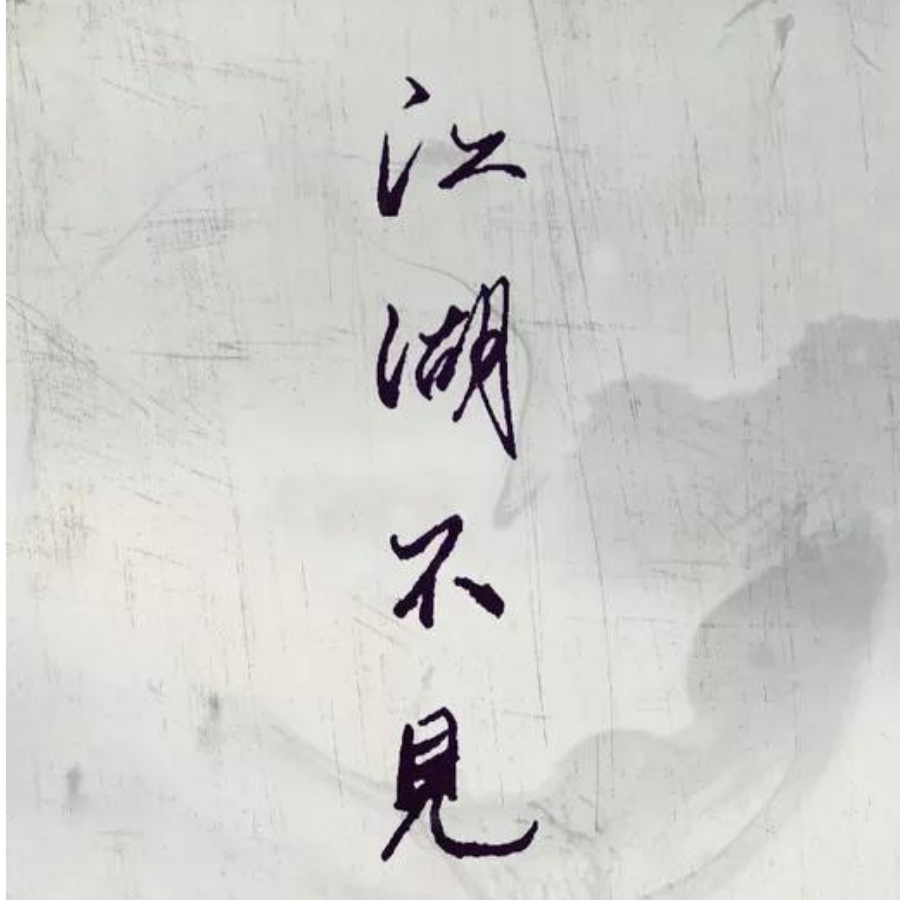 江湖不見